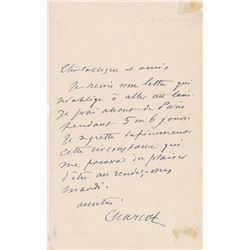 Cher collègue et ami
Je reçois une lettre qui
m'oblige à aller au loin.
Je serai absent de Paris
pendant 5 ou 6 jours.
Je regrette infiniment
cette circonstance qui
me prive du plaisir
d'être au rendez-vous
mardi.
amitiés
Charcot